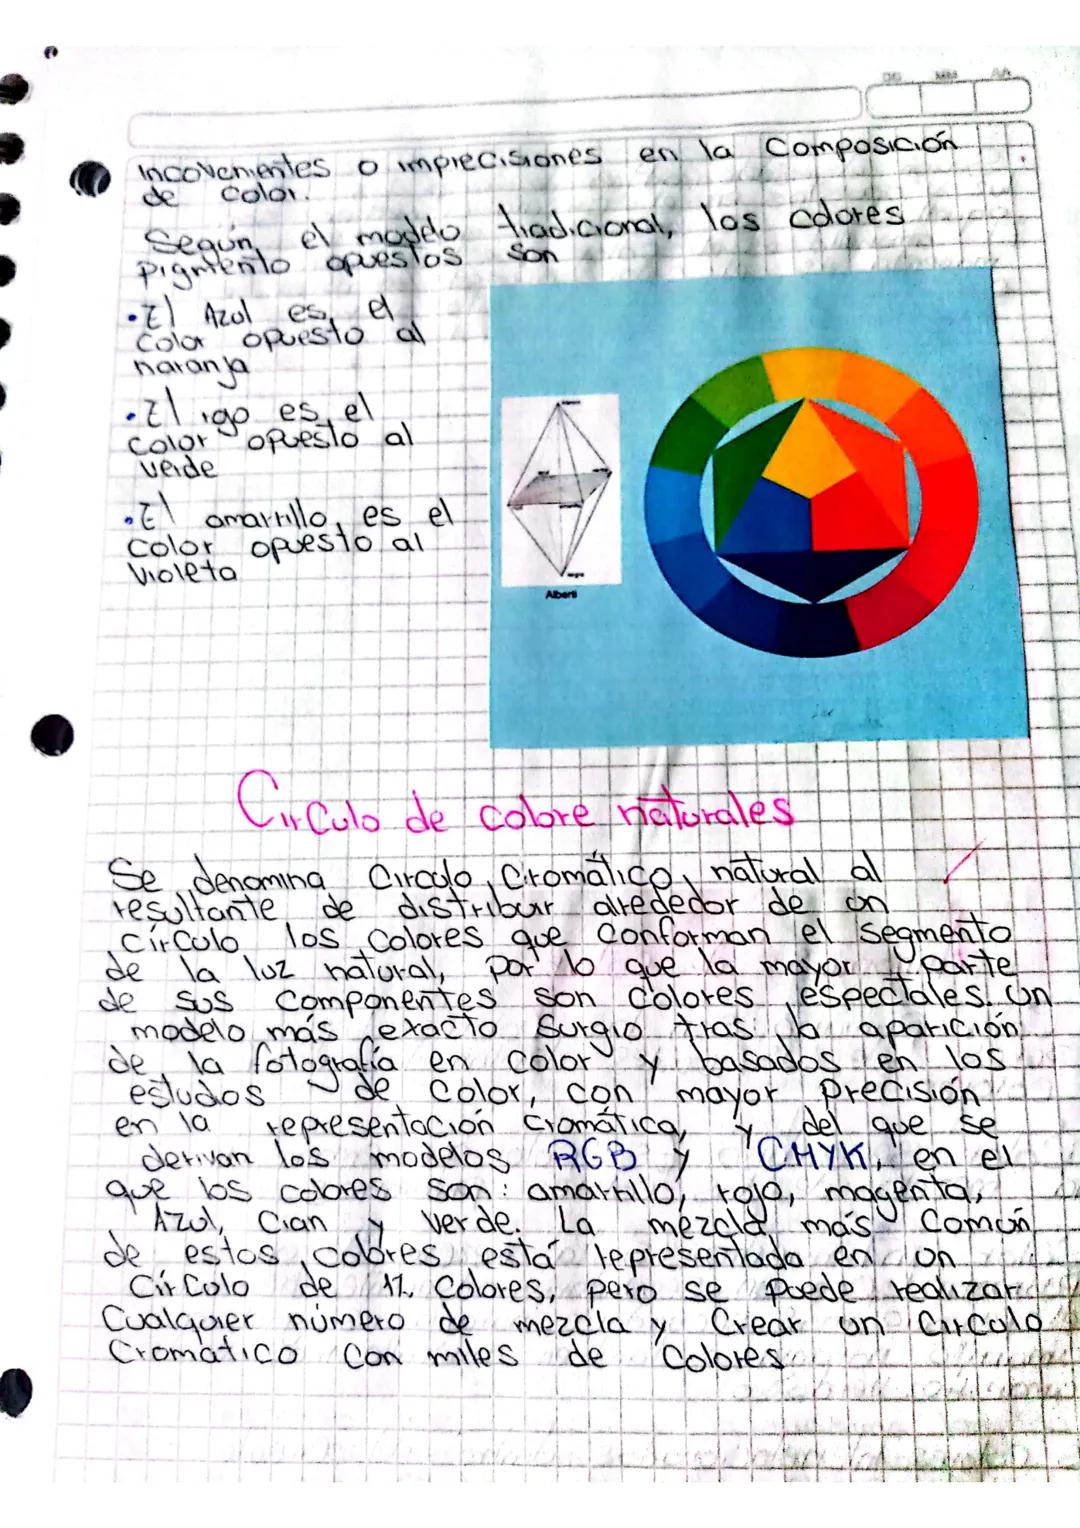 DD MM AA
Incovenientes o imprecisiones en la Composición
de color.
Según el modelo tradicional, los colores
pigmento opuestos son
•El Azul es el
Color opuesto al
naranja
•El rgo es el
Color opuesto al
verde
•El amarrillo es el
Color opuesto al
Violeta
Alberti
Circulo de colore naturales
Se denomina Circulo Cromático natural al
resultante de distribuir alrededor de un
círculo los Colores que Conforman el segmento
de la luz natural, por lo que la mayor parte
de sus Componentes son colores espectales. Un
modelo más exacto Surgio tras la aparición
de la fotografía en Color y basados en los
estudios de Color, con mayor Precisión
en la representación cromática, y del que se
derivan los modelos RGB y CHYK, en el
que los colores son: amarrillo, rojo, magenta,
Azul, Cian y Verde. La mezcla más Común
de estos colores está representada en un
Cír Culo de 12 Colores, pero se puede realizar
Cualquier número de mezcla y Crear un Circulo
Cromatico Con miles de Colores